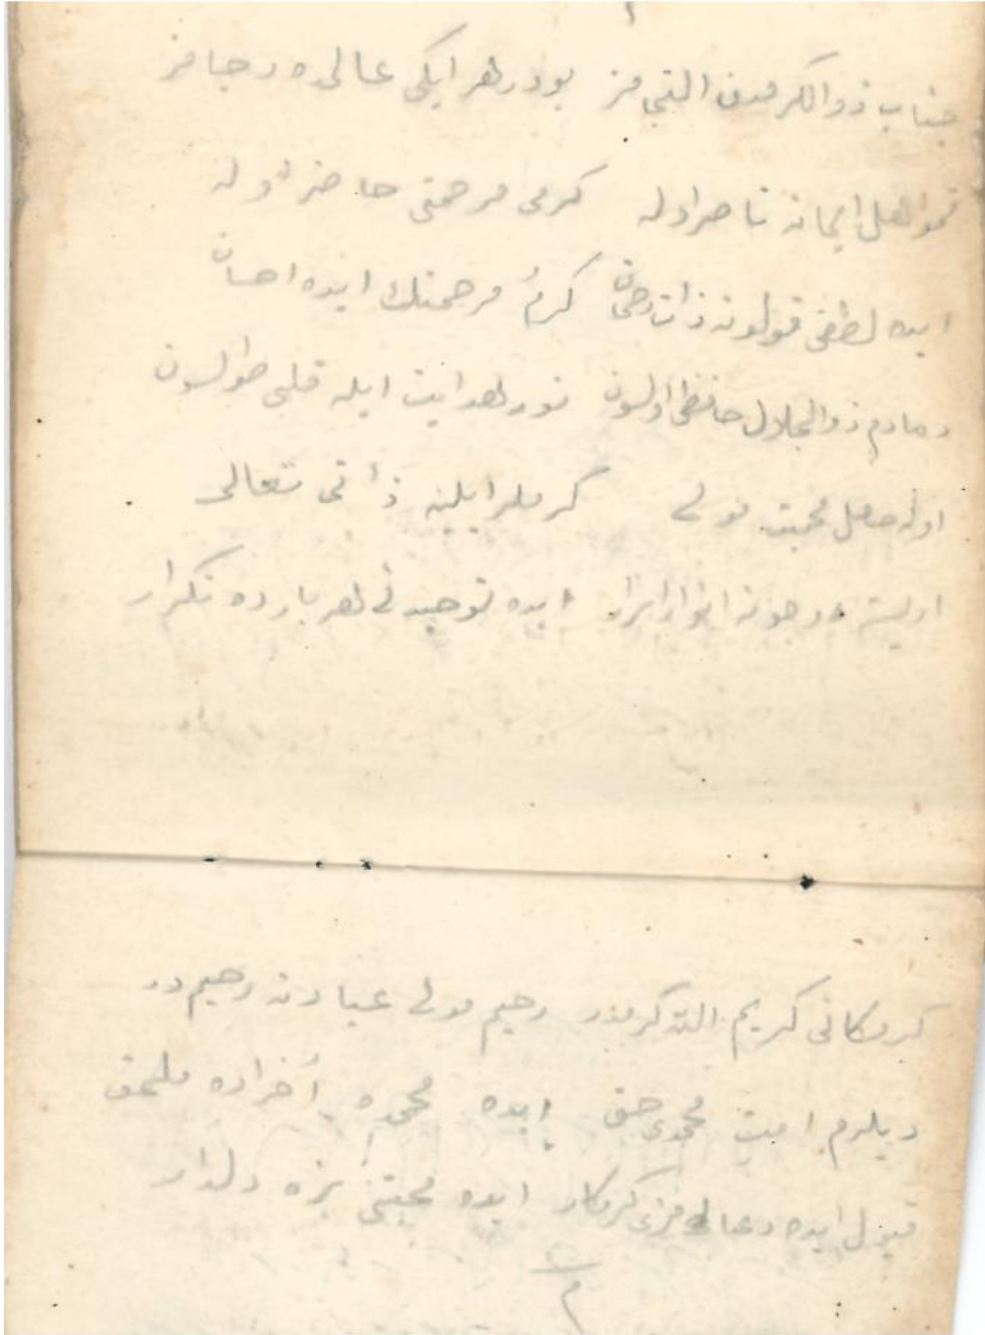 جناب ذوالكرمدن التجامز بودر هر ايكى عالمده رجامز
قمو اهل ايمانه ناصر اوله كرمى مرحمتى حاضر اوله
ايده لطفى قولونه ذات رحمان كرم مرحمتك ايده احسان
دمادم ذوالجلال حافظى اولسون نور هدايت ايله قلبى طولسون
اوله حاصل محبت مولى كرملر ايليه ذاتى تعالى
ايده توحيدنى هر بارده تكرار
كرمكانى كريم الله كرمدر رحيم مولى عبادنه رحيمدر
ديلرم امت محمدى حق ايده محمده أخراده ملحق
قبول ايده دعالرمزى كرمكار ايده محبتنى بزه دلدار
م